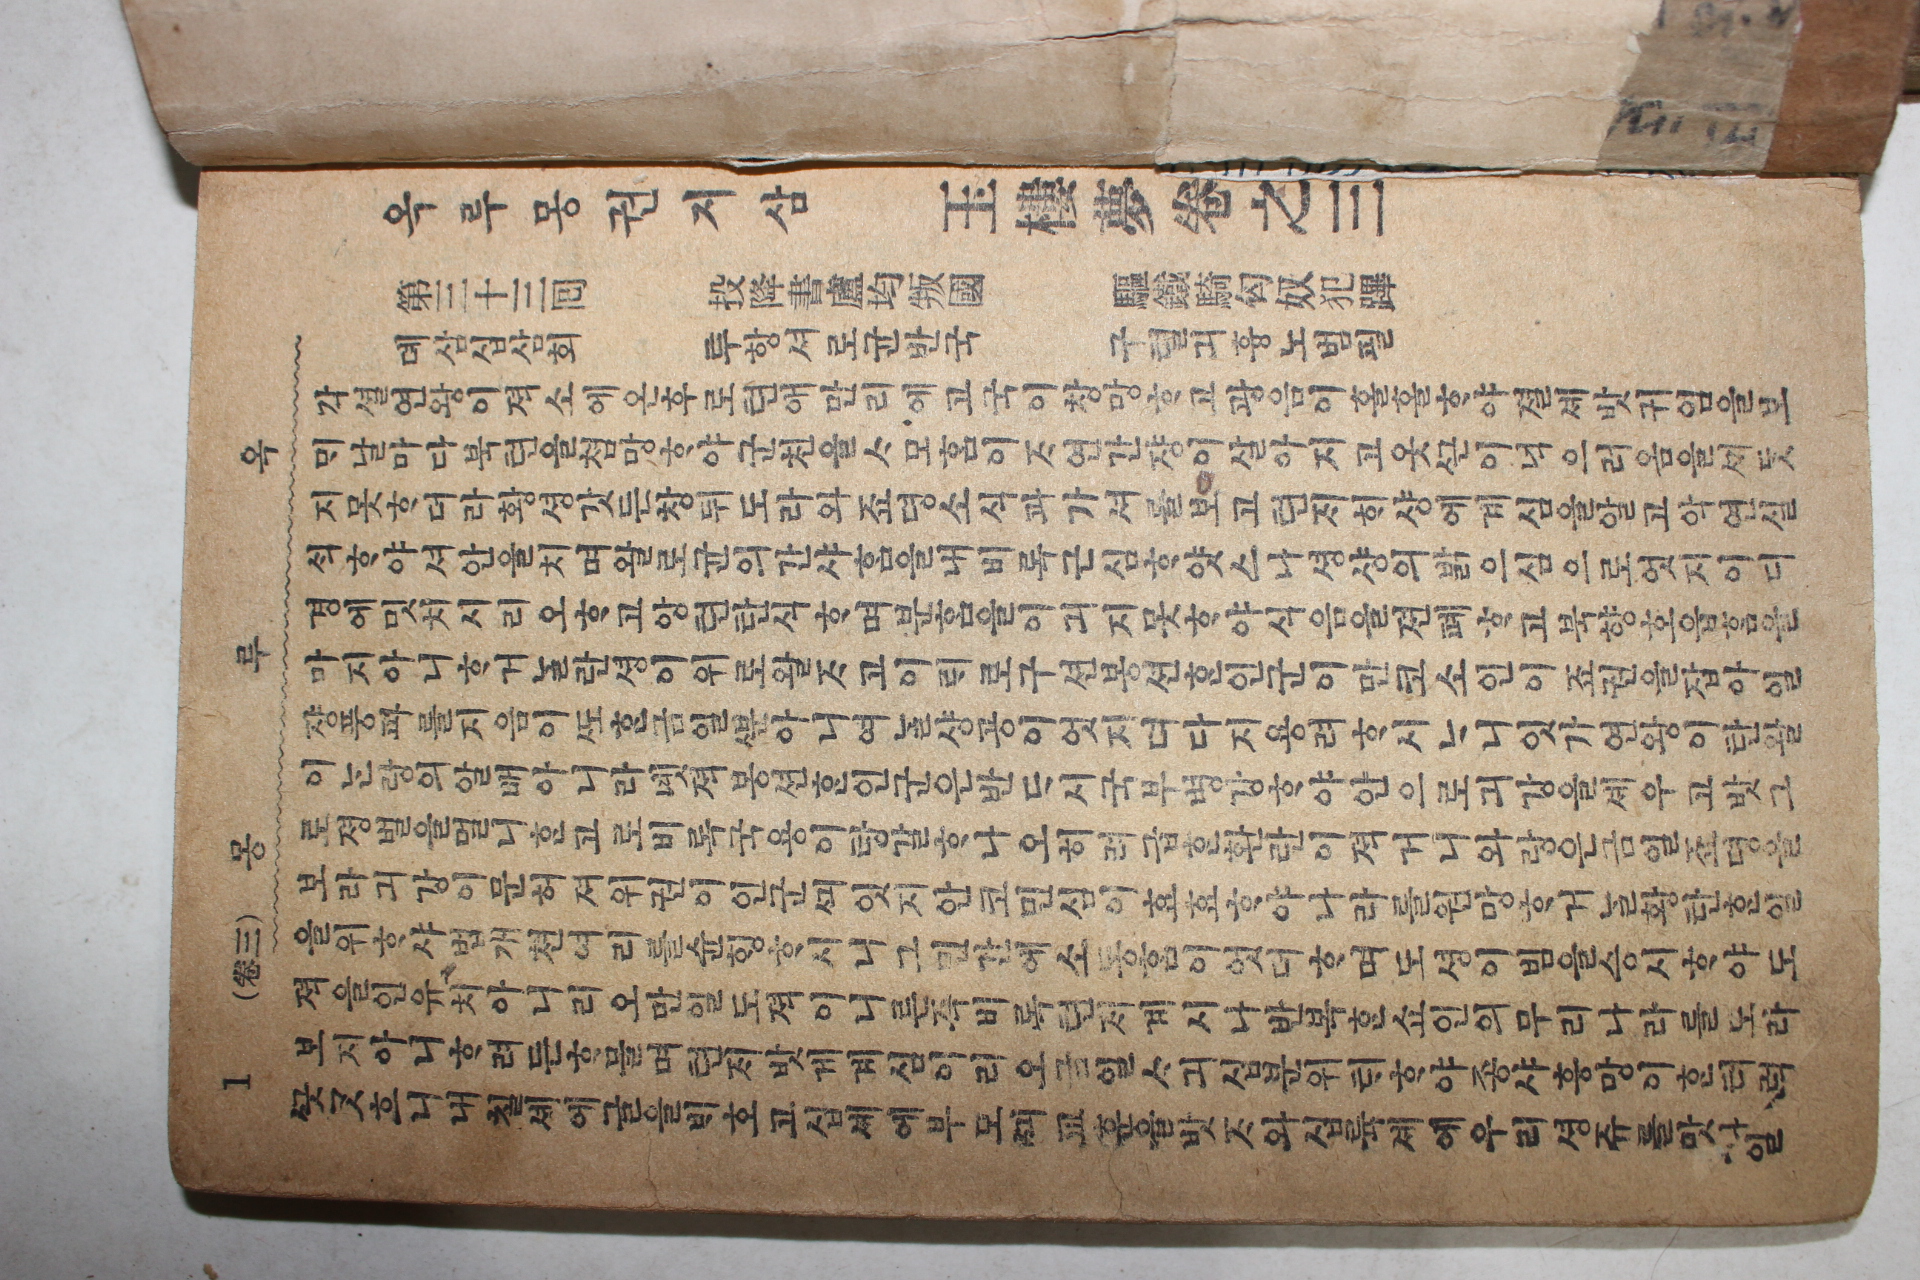 옥루몽 (卷三) 1
옥루몽권지삼 玉樓夢卷之三
第三十三回 投降書盧均叛國 驅鐵騎匈奴犯蹕
뎨삼십삼회 투항셔로균반국 구텰긔흉노범필
각셜연왕이젹소에온후로텬애만리에고국이창망ᄒᆞ고광음이홀홀ᄒᆞ야졀셰밧귀임을보
ᄆᆡ날마다북텬을쳠망ᄒᆞ야군친을ᄉᆞ모홈이ᄌᆞ연간쟝이살아지고옷ᄭᅳᆫ이녁으러옴을ᄭᆡ듯
지못ᄒᆞ더라황셩갓든창뒤도라와죠뎡소식과가셔를보고텬ᄌᆡᄒᆡ샹에계심을알고악연실
ᄉᆡᆨᄒᆞ야셔안을치며왈로균의간샤홈을내비록근심ᄒᆞ얏스나셩샹의밝으심으로엇지이디
경에밋치시리오ᄒᆞ고앙텬탄식ᄒᆞ며분홈을이긔지못ᄒᆞ야식음을젼폐ᄒᆞ고북향호읍홈을
마지아니ᄒᆞ거ᄂᆞᆯ란셩이위로왈ᄌᆞ고이ᄅᆡ로구션봉션ᄒᆞᆫ인군이만코소인이죠권을잡아일
쟝풍파를지음이ᄯᅩᄒᆞᆫ금일ᄲᅮᆫ아니여ᄂᆞᆯ샹공이엇지뎌다지용려ᄒᆞ시ᄂᆞ니잇가연왕이탄왈
이ᄂᆞᆫ랑의알배아니라녯젹봉션ᄒᆞᆫ인군은반ᄃᆞ시국부병강ᄒᆞ야안으로긔강을셰우고밧그
로졍벌을멀니ᄒᆞᆫ고로비록국용이탕갈ᄒᆞ나오히려급ᄒᆞᆫ환란이젹거니와랑은금일죠뎡을
보라긔강이문허져위권이인군ᄭᅴ잇지안코민심이효효ᄒᆞ야나라를원망ᄒᆞ거ᄂᆞᆯ황탄ᄒᆞᆫ일
을위ᄒᆞ샤법개쳔여리를슌ᄒᆡᆼᄒᆞ시니그민간에소동홈이엇더ᄒᆞ며도셩이빔을승시ᄒᆞ야도
젹을인유치아니리오만일도젹이니른즉비록텬ᄌᆡ계시나반복ᄒᆞᆫ쇼인의무리나라를도라
보지아니ᄒᆞ려든ᄒᆞ믈며텬ᄌᆡ밧게계심이리오금일ᄉᆞ긔십분위ᄐᆡᄒᆞ야죵샤흥망이ᄒᆞᆫ터럭
ᄭᅳᆺᄀᆞᆺᄒᆞ니내칠셰에글을ᄇᆡ호고십셰에부모ᄭᅴ교훈을밧ᄌᆞ와십륙셰에우리셩쥬를맛나일